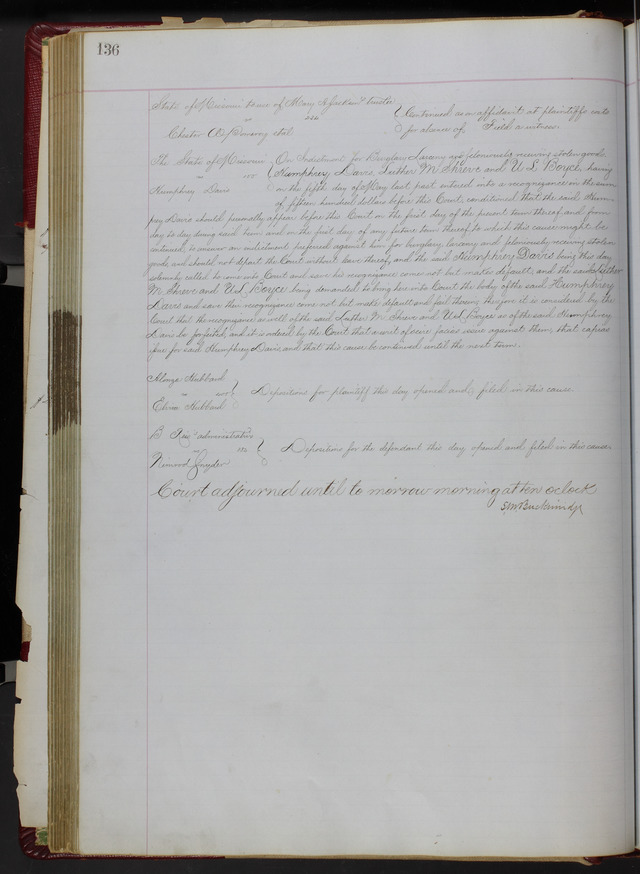 136
State of Missouri to use of Mary Jackson Trustee
vs
Chester
Continued as on affidavit at plaintiffs costs
for absence of Fields a witness.
The State of Missouri
vs
Humphrey Davis
On Indictment for Burglary Larceny and feloniously receiving stolen goods
Humphrey Davis, Luther M Shreve and U L Boyce, having
on the fifth day of May last past entered into a recognizance in the sum
of fifteen hundred dollars before this Court, conditioned that the said Hum-
prey Davis should personally appear before this Court on the first day of the present term thereof and from
day to day during said term and on the first day of any future term thereof to which this cause might be
continued, to answer an indictment preferred against him for burglary, larceny and feloniously receiving stolen
goods, and should not depart the Court without leave thereof, and the said Humphrey Davis being this day
solemnly called to come into Court and save his recognizance comes not but makes default, and the said Luther
M Shreve and U L Boyce being demanded to bring here into Court the body of the said Humphrey
Davis and save their recognizance come not but make default and fail therein therefore it is considered by the
Court that the recognizance as well of the said Luther M Shreve and U L Boyce as of the said Humphrey
Davis be forfeited, and it is ordered by the Court that a writ of scire facias issue against them, that capias
issue for said Humphrey Davis, and that this cause be continued until the next term.
Alonzo Hubbard
vs
Hubbard
Depositions for plaintiff this day opened and filed in this cause
B administrator
vs
Snyder
Depositions for the defendant this day opened and filed in this cause
Court adjourned until to morrow morning at ten oclock